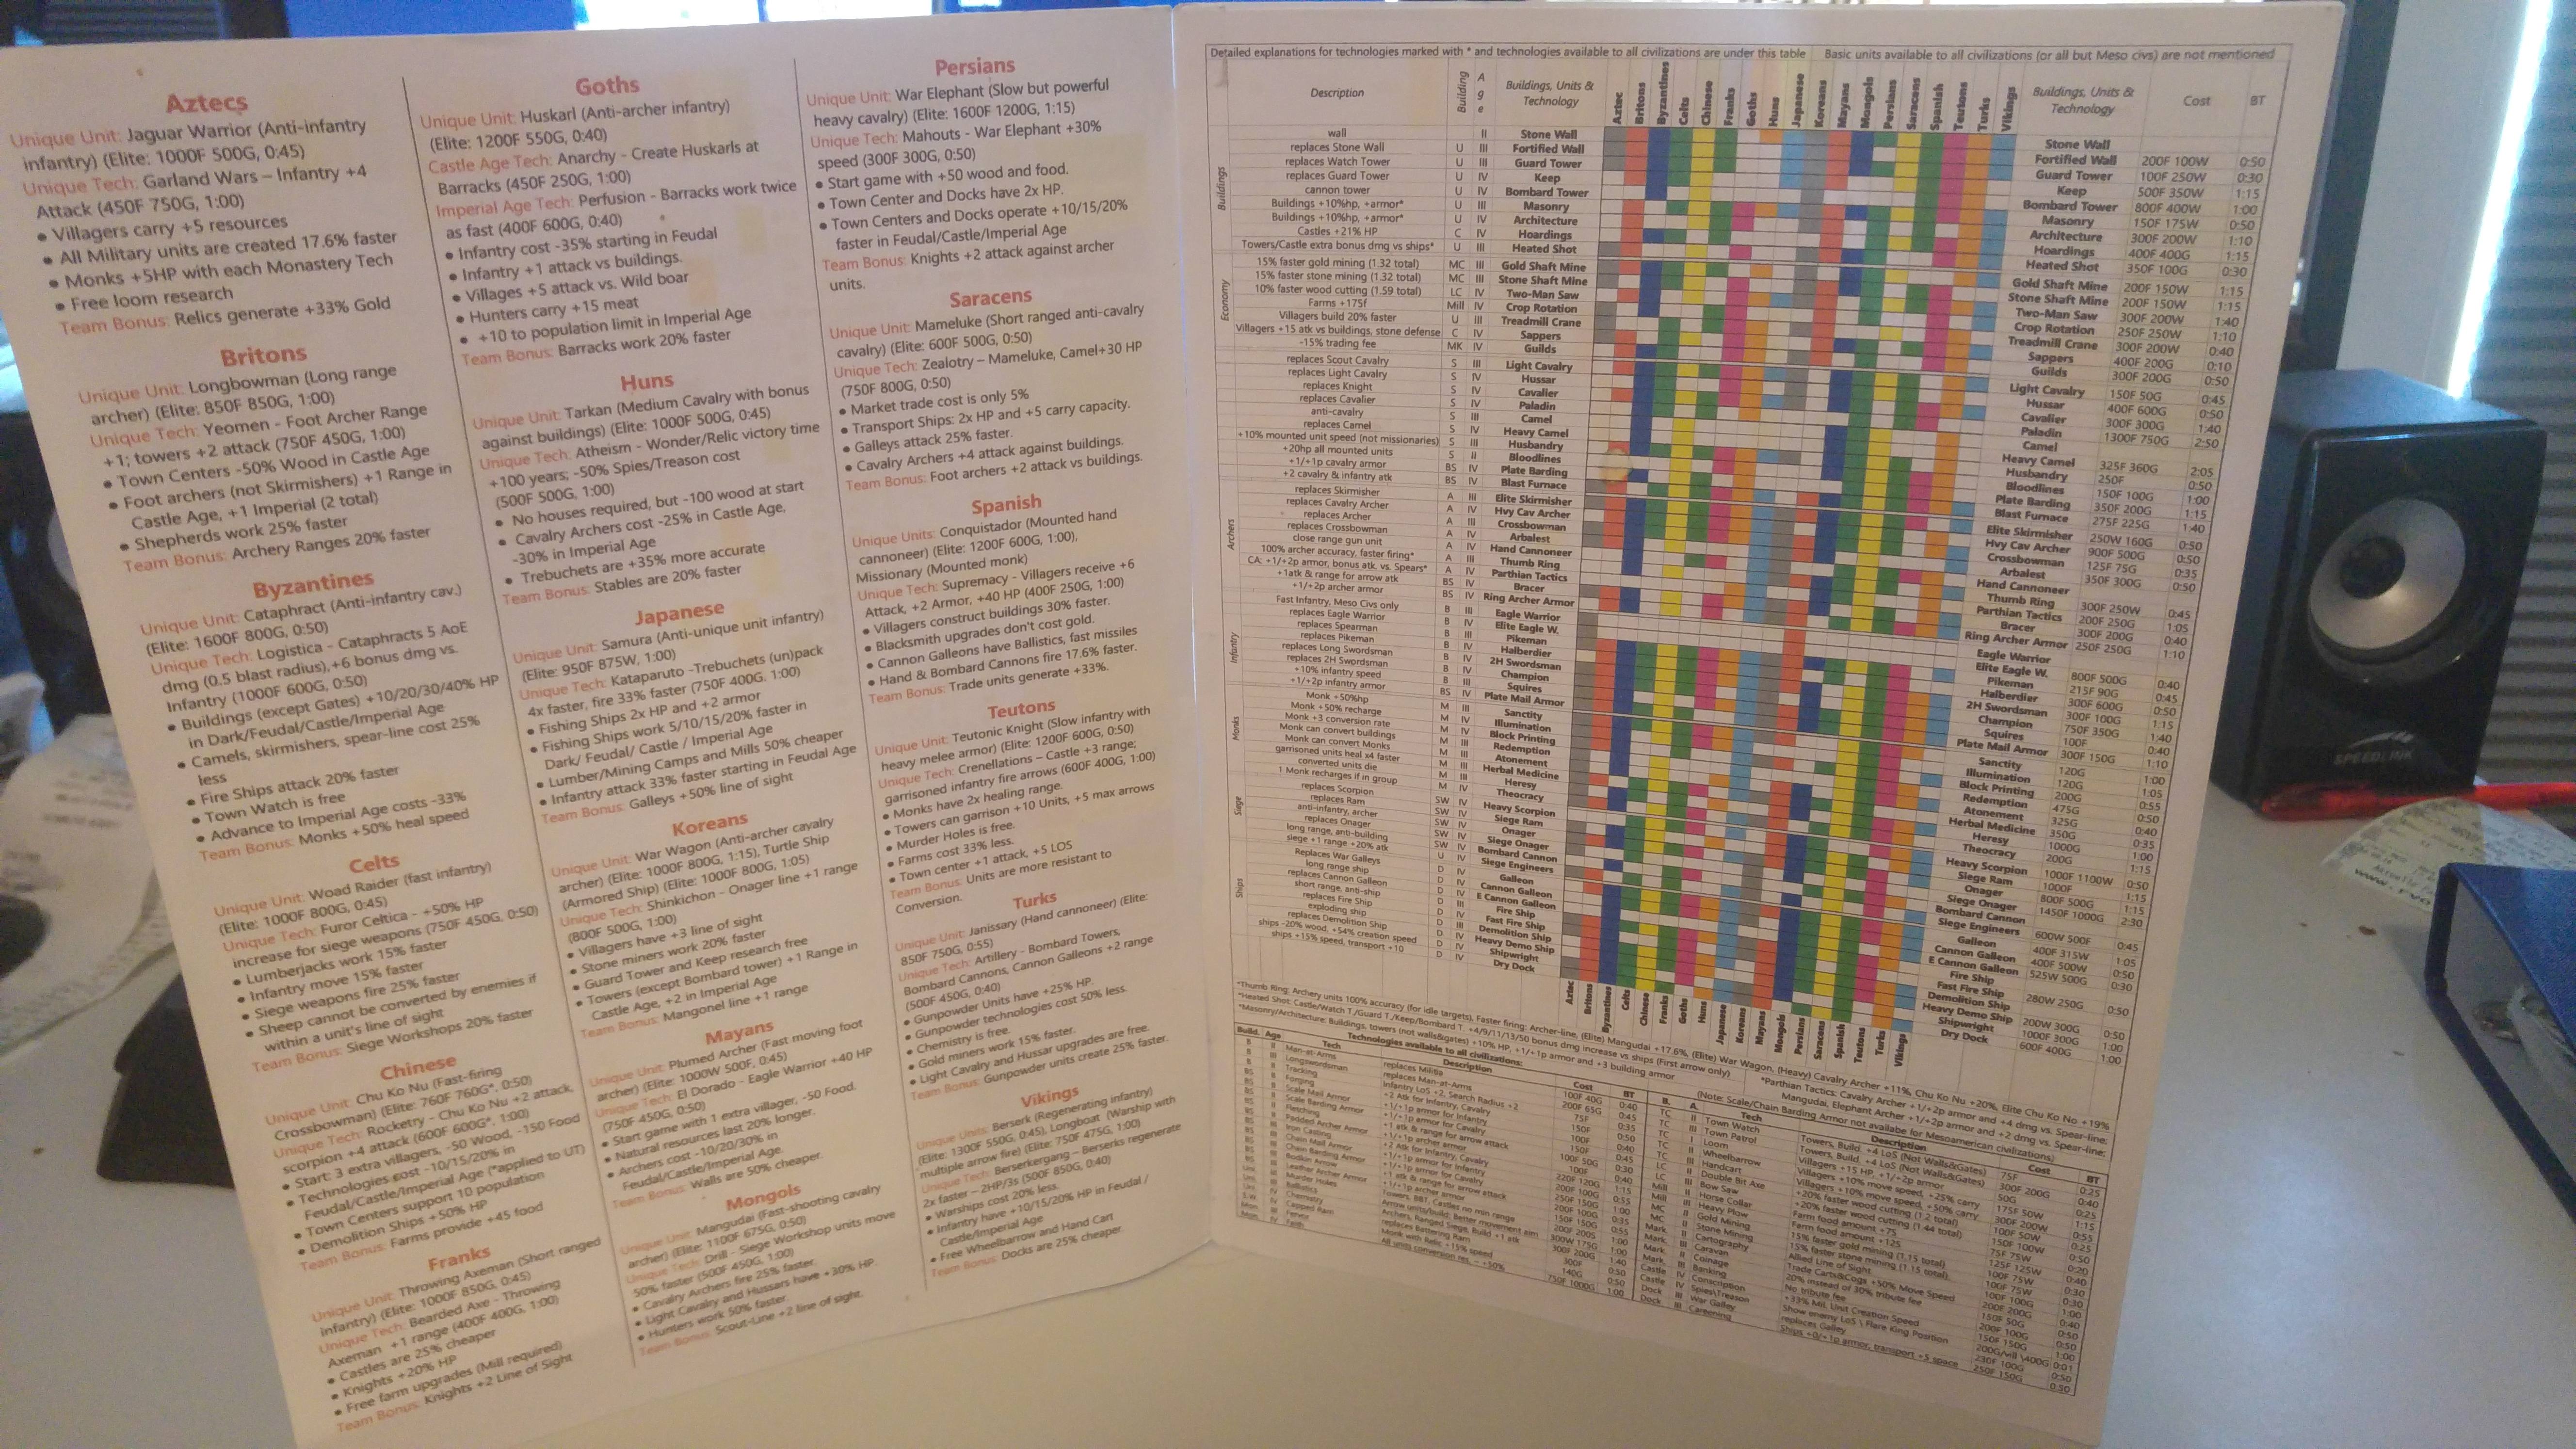 Aztecs
Unique Unit: Jaguar Warrior (Anti-infantry
infantry) (Elite: 1000F 500G, 0:45)
Unique Tech: Garland Wars – Infantry +4
Attack (450F 750G, 1:00)
• Villagers carry +5 resources
• All Military units are created 17.6% faster
• Monks +5HP with each Monastery Tech
• Free loom research
Team Bonus: Relics generate +33% Gold
Britons
Unique Unit: Longbowman (Long range
archer) (Elite: 850F 850G, 1:00)
Unique Tech: Yeomen - Foot Archer Range
+1; towers +2 attack (750F 450G, 1:00)
• Town Centers -50% Wood in Castle Age
• Foot archers (not Skirmishers) +1 Range in
Castle Age, +1 Imperial (2 total)
• Shepherds work 25% faster
Team Bonus: Archery Ranges 20% faster
Byzantines
Unique Unit: Cataphract (Anti-infantry cav.)
(Elite: 1600F 800G, 0:50)
Unique Tech: Logistica - Cataphracts 5 AoE
dmg (0.5 blast radius),+6 bonus dmg vs.
Infantry (1000F 600G, 0:50)
• Buildings (except Gates) +10/20/30/40% HP
in Dark/Feudal/Castle/Imperial Age
• Camels, skirmishers, spear-line cost 25%
less
• Fire Ships attack 20% faster
• Town Watch is free
• Advance to Imperial Age costs -33%
Team Bonus: Monks +50% heal speed
Celts
Unique Unit: Woad Raider (fast infantry)
(Elite: 1000F 800G, 0:45)
Unique Tech: Furor Celtica - +50% HP
increase for siege weapons (750F 450G, 0:50)
• Lumberjacks work 15% faster
• Infantry move 15% faster
• Siege weapons fire 25% faster
• Sheep cannot be converted by enemies if
within a unit's line of sight
Team Bonus: Siege Workshops 20% faster
Chinese
Unique Unit: Chu Ko Nu (Fast-firing
Crossbowman) (Elite: 760F 760G*, 0:50)
Unique Tech: Rocketry - Chu Ko Nu +2 attack,
scorpion +4 attack (600F 600G*, 1:00)
• Start: 3 extra villagers, -50 Wood, -150 Food
• Technologies cost -10/15/20% in
Feudal/Castle/Imperial Age (*applied to UT)
• Town Centers support 10 population
• Demolition Ships +50% HP
Team Bonus: Farms provide +45 food
Franks
Unique Unit: Throwing Axeman (Short ranged
infantry) (Elite: 1000F 850G, 0:45)
Unique Tech: Bearded Axe - Throwing
Axeman +1 range (400F 400G, 1:00)
• Castles are 25% cheaper
• Knights +20% HP
• Free farm upgrades (Mill required)
Team Bonus: Knights +2 Line of Sight
Goths
Unique Unit: Huskarl (Anti-archer infantry)
(Elite: 1200F 550G, 0:40)
Castle Age Tech: Anarchy - Create Huskarls at
Barracks (450F 250G, 1:00)
Imperial Age Tech: Perfusion - Barracks work twice
as fast (400F 600G, 0:40)
• Infantry cost -35% starting in Feudal
• Infantry +1 attack vs buildings.
• Villages +5 attack vs. Wild boar
• Hunters carry +15 meat
• +10 to population limit in Imperial Age
Team Bonus: Barracks work 20% faster
Huns
Unique Unit: Tarkan (Medium Cavalry with bonus
against buildings) (Elite: 1000F 500G, 0:45)
Unique Tech: Atheism - Wonder/Relic victory time
+100 years; -50% Spies/Treason cost
(500F 500G, 1:00)
• No houses required, but -100 wood at start
• Cavalry Archers cost -25% in Castle Age,
-30% in Imperial Age
• Trebuchets are +35% more accurate
Team Bonus: Stables are 20% faster
Japanese
Unique Unit: Samura (Anti-unique unit infantry)
(Elite: 950F 875W, 1:00)
Unique Tech: Kataparuto -Trebuchets (un)pack
4x faster, fire 33% faster (750F 400G. 1:00)
• Fishing Ships 2x HP and +2 armor
• Fishing Ships work 5/10/15/20% faster in
Dark/ Feudal/ Castle / Imperial Age
• Lumber/Mining Camps and Mills 50% cheaper
• Infantry attack 33% faster starting in Feudal Age
Team Bonus: Galleys +50% line of sight
Koreans
Unique Unit: War Wagon (Anti-archer cavalry
archer) (Elite: 1000F 800G, 1:15), Turtle Ship
(Armored Ship) (Elite: 1000F 800G, 1:05)
Unique Tech: Shinkichon - Onager line +1 range
(800F 500G, 1:00)
• Villagers have +3 line of sight
• Stone miners work 20% faster
• Guard Tower and Keep research free
• Towers (except Bombard tower) +1 Range in
Castle Age, +2 in Imperial Age
Team Bonus: Mangonel line +1 range
Mayans
Unique Unit: Plumed Archer (Fast moving foot
archer) (Elite: 1000W 500F, 0:45)
Unique Tech: El Dorado - Eagle Warrior +40 HP
(750F 450G, 0:50)
• Start game with 1 extra villager, -50 Food.
• Natural resources last 20% longer.
• Archers cost -10/20/30% in
Feudal/Castle/Imperial Age.
Team Bonus: Walls are 50% cheaper.
Mongols
Unique Unit: Mangudai (Fast-shooting cavalry
archer) (Elite: 1100F 675G, 0:50)
Unique Tech: Drill - Siege Workshop units move
50% faster (500F 450G, 1:00)
• Cavalry Archers fire 25% faster.
• Light Cavalry and Hussars have +30% HP.
• Hunters work 50% faster.
Team Bonus: Scout-Line +2 line of sight.
Persians
Unique Unit: War Elephant (Slow but powerful
heavy cavalry) (Elite: 1600F 1200G, 1:15)
Unique Tech: Mahouts - War Elephant +30%
speed (300F 300G, 0:50)
• Start game with +50 wood and food.
• Town Center and Docks have 2x HP.
• Town Centers and Docks operate +10/15/20%
faster in Feudal/Castle/Imperial Age
Team Bonus: Knights +2 attack against archer
units.
Saracens
Unique Unit: Mameluke (Short ranged anti-cavalry
cavalry) (Elite: 600F 500G, 0:50)
Unique Tech: Zealotry – Mameluke, Camel+30 HP
(750F 800G, 0:50)
• Market trade cost is only 5%
• Transport Ships: 2x HP and +5 carry capacity.
• Galleys attack 25% faster.
• Cavalry Archers +4 attack against buildings.
Team Bonus: Foot archers +2 attack vs buildings.
Spanish
Unique Units: Conquistador (Mounted hand
cannoneer) (Elite: 1200F 600G, 1:00),
Missionary (Mounted monk)
Unique Tech: Supremacy - Villagers receive +6
Attack, +2 Armor, +40 HP (400F 250G, 1:00)
• Villagers construct buildings 30% faster.
• Blacksmith upgrades don't cost gold.
• Cannon Galleons have Ballistics, fast missiles
• Hand & Bombard Cannons fire 17.6% faster.
Team Bonus: Trade units generate +33%.
Teutons
Unique Unit: Teutonic Knight (Slow infantry with
heavy melee armor) (Elite: 1200F 600G, 0:50)
Unique Tech: Crenellations – Castle +3 range;
garrisoned infantry fire arrows (600F 400G, 1:00)
• Monks have 2x healing range.
• Towers can garrison +10 Units, +5 max arrows
• Murder Holes is free.
• Farms cost 33% less.
• Town center +1 attack, +5 LOS
Team Bonus: Units are more resistant to
Conversion.
Turks
Unique Unit: Janissary (Hand cannoneer) (Elite:
850F 750G, 0:55)
Unique Tech: Artillery - Bombard Towers,
Bombard Cannons, Cannon Galleons +2 range
(500F 450G, 0:40)
• Gunpowder Units have +25% HP.
• Gunpowder technologies cost 50% less.
• Chemistry is free.
• Gold miners work 15% faster.
• Light Cavalry and Hussar upgrades are free.
Team Bonus: Gunpowder units create 25% faster.
Vikings
Unique Units: Berserk (Regenerating infantry)
(Elite: 1300F 550G, 0:45), Longboat (Warship with
multiple arrow fire) (Elite: 750F 475G, 1:00)
Unique Tech: Berserkergang – Berserks regenerate
2x faster – 2HP/3s (500F 850G, 0:40)
• Warships cost 20% less.
• Infantry have +10/15/20% HP in Feudal /
Castle/Imperial Age
• Free Wheelbarrow and Hand Cart
Team Bonus: Docks are 25% cheaper.
Detailed explanations for technologies marked with * and technologies available to all civilizations are under this table
Basic units available to all civilizations (or all but Meso civs) are not mentioned
Description Building Age Buildings, Units & Technology Aztec Britons Byzantines Celts Chinese Franks Goths Huns Japanese Koreans Mayans Mongols Persians Saracens Spanish Teutons Turks Vikings Buildings, Units & Technology Cost BT
Buildings
wall II Stone Wall Stone Wall
replaces Stone Wall U III Fortified Wall Fortified Wall 200F 100W 0:50
replaces Watch Tower U III Guard Tower Guard Tower 100F 250W 0:30
replaces Guard Tower U IV Keep Keep 500F 350W 1:15
cannon tower U IV Bombard Tower Bombard Tower 800F 400W 1:00
Buildings +10%hp, +armor* U III Masonry Masonry 150F 175W 0:50
Buildings +10%hp, +armor* U IV Architecture Architecture 300F 200W 1:10
Castles +21% HP C IV Hoardings Hoardings 400F 400G 1:15
Towers/Castle extra bonus dmg vs ships* U III Heated Shot Heated Shot 350F 100G 0:30
Economy
15% faster gold mining (1.32 total) MC III Gold Shaft Mine Gold Shaft Mine 200F 150W 1:15
15% faster stone mining (1.32 total) MC III Stone Shaft Mine Stone Shaft Mine 200F 150W 1:15
10% faster wood cutting (1.59 total) LC IV Two-Man Saw Two-Man Saw 300F 200W 1:40
Farms +175f Mill IV Crop Rotation Crop Rotation 250F 250W 1:10
Villagers build 20% faster U III Treadmill Crane Treadmill Crane 300F 200W 0:40
Villagers +15 atk vs buildings, stone defense C IV Sappers Sappers 400F 200G 0:10
-15% trading fee MK IV Guilds Guilds 300F 200G 0:50
replaces Scout Cavalry S III Light Cavalry Light Cavalry 150F 50G 0:45
replaces Light Cavalry S IV Hussar Hussar 400F 600G 0:50
replaces Knight S IV Cavalier Cavalier 300F 300G 1:40
replaces Cavalier S IV Paladin Paladin 1300F 750G 2:50
anti-cavalry S III Camel Camel
replaces Camel S IV Heavy Camel Heavy Camel 325F 360G 2:05
+10% mounted unit speed (not missionaries) S III Husbandry Husbandry 250F 0:50
+20hp all mounted units S II Bloodlines Bloodlines 150F 100G 1:00
+1/+1p cavalry armor BS IV Plate Barding Plate Barding 350F 200G 1:15
+2 cavalry & infantry atk BS IV Blast Furnace Blast Furnace 275F 225G 1:40
Archers
replaces Skirmisher A III Elite Skirmisher Elite Skirmisher 250W 160G 0:50
replaces Cavalry Archer A IV Hvy Cav Archer Hvy Cav Archer 900F 500G 0:50
replaces Archer A III Crossbowman Crossbowman 125F 75G 0:35
replaces Crossbowman A IV Arbalest Arbalest 350F 300G 0:50
close range gun unit A IV Hand Cannoneer Hand Cannoneer
100% archer accuracy, faster firing* A III Thumb Ring Thumb Ring 300F 250W 0:45
CA: +1/+2p armor, bonus atk. vs. Spears* A IV Parthian Tactics Parthian Tactics 200F 250G 1:05
+1atk & range for arrow atk BS IV Bracer Bracer 300F 200G 0:40
+1/+2p archer armor BS IV Ring Archer Armor Ring Archer Armor 250F 250G 1:10
Infantry
Fast Infantry, Meso Civs only B III Eagle Warrior Eagle Warrior
replaces Eagle Warrior B IV Elite Eagle W. Elite Eagle W. 800F 500G 0:40
replaces Spearman B III Pikeman Pikeman 215F 90G 0:45
replaces Pikeman B IV Halberdier Halberdier 300F 600G 0:50
replaces Long Swordsman B IV 2H Swordsman 2H Swordsman 300F 100G 1:15
replaces 2H Swordsman B IV Champion Champion 750F 350G 1:40
+10% infantry speed B III Squires Squires 100F 0:40
+1/+2p infantry armor BS IV Plate Mail Armor Plate Mail Armor 300F 150G 1:10
Monks
Monk +50%hp M III Sanctity Sanctity 120G 1:00
Monk +50% recharge M IV Illumination Illumination 120G 1:05
Monk +3 conversion rate M IV Block Printing Block Printing 200G 0:55
Monk can convert buildings M III Redemption Redemption 475G 0:50
Monk can convert Monks M III Atonement Atonement 325G 0:40
garrisoned units heal x4 faster M III Herbal Medicine Herbal Medicine 350G 0:35
converted units die M III Heresy Heresy 1000G 1:00
1 Monk recharges if in group M IV Theocracy Theocracy 200G 1:15
Siege
replaces Scorpion SW IV Heavy Scorpion Heavy Scorpion 1000F 1100W 0:50
replaces Ram SW IV Siege Ram Siege Ram 1000F 1:15
anti-infantry, archer SW IV Onager Onager 800F 500G 1:15
replaces Onager SW IV Siege Onager Siege Onager 1450F 1000G 2:30
long range, anti-building SW IV Bombard Cannon Bombard Cannon
siege +1 range +20% atk U IV Siege Engineers Siege Engineers 600W 500F 0:45
Ships
Replaces War Galleys D IV Galleon Galleon 400F 315W 1:05
long range ship D IV Cannon Galleon Cannon Galleon 400F 500W 0:50
replaces Cannon Galleon D IV E Cannon Galleon E Cannon Galleon 525W 500G 0:30
short range, anti-ship D III Fire Ship Fire Ship
replaces Fire Ship D IV Fast Fire Ship Fast Fire Ship 280W 250G 0:50
exploding ship D III Demolition Ship Demolition Ship
replaces Demolition Ship D IV Heavy Demo Ship Heavy Demo Ship 200W 300G 0:50
ships -20% wood, +54% creation speed D IV Shipwright Shipwright 1000F 300G 1:00
ships +15% speed, transport +10 D IV Dry Dock Dry Dock 600F 400G 1:00
Aztec Britons Byzantines Celts Chinese Franks Goths Huns Japanese Koreans Mayans Mongols Persians Saracens Spanish Teutons Turks Vikings
*Thumb Ring: Archery units 100% accuracy (for idle targets), Faster firing: Archer-line, (Elite) Mangudai +17.6%, (Elite) War Wagon, (Heavy) Cavalry Archer +11%, Chu Ko Nu +20%, Elite Chu Ko Nu +19%
*Heated Shot: Castle/Watch T./Guard T./Keep/Bombard T. +4/9/11/13/50 bonus dmg increase vs ships (First arrow only)
*Parthian Tactics: Cavalry Archer +1/+2p armor and +4 dmg vs. Spear-line;
*Masonry/Architecture: Buildings, towers (not walls&gates) +10% HP, +1/+1p armor and +3 building armor
Mangudai, Elephant Archer +1/+2p armor and +2 dmg vs. Spear-line;
Technologies available to all civilizations:
(Note: Scale/Chain Barding Armor not availabe for Mesoamerican civilizations)
Build. Age Tech Description Cost BT
B II Man-at-Arms replaces Militia 100F 40G 0:40
B III Longswordsman replaces Man-at-Arms 200F 65G 0:45
Tracking Infantry LoS +2, Search Radius +2 75F 0:35
Forging +2 Atk for Infantry, Cavalry 150F 0:50
Scale Mail Armor +1/+1p armor for Infantry 100F 0:40
Scale Barding Armor +1/+1p armor for Cavalry 150F 0:45
Fletching +1 atk & range for arrow attack 100F 50G 0:30
Padded Archer Armor +1/+1p archer armor 100F 0:40
Iron Casting +2 Atk for Infantry, Cavalry 220F 120G 1:15
Chain Mail Armor +1/+1p armor for Infantry 200F 100G 0:55
Chain Barding Armor +1/+1p armor for Cavalry 250F 150G 1:00
Bodkin Arrow +1 atk & range for arrow attack 200F 100G 0:35
Leather Archer Armor +1/+1p archer armor 150F 150G 0:55
Murder Holes Towers, BBT, Castles no min range 200F 200S 1:00
Ballistics Arrow units/build: Better movement aim 300W 175G 1:00
Chemistry Archers, Ranged Siege, Build +1 atk 300F 200G 1:40
Capped Ram replaces Battering Ram 300F 0:50
Fervor Monk with Relic +15% speed 140G 0:50
Faith All units conversion res. - +50% 750F 1000G 1:00
B. A. Tech Description Cost BT
TC II Town Watch Towers, Build. +4 LoS (Not Walls&Gates) 75F 0:25
TC III Town Patrol Towers, Build. +4 LoS (Not Walls&Gates) 300F 200G 0:40
TC I Loom Villagers +15 HP, +1/+2p armor 50G 0:25
TC II Wheelbarrow Villagers +10% move speed, +25% carry 175F 50W 1:15
TC III Handcart Villagers +10% move speed, +50% carry 300F 200W 0:55
LC II Double Bit Axe +20% faster wood cutting (1.2 total) 100F 50W 0:25
LC III Bow Saw +20% faster wood cutting (1.44 total) 150F 100W 0:50
Mill II Horse Collar Farm food amount +75 75F 75W 0:20
Mill III Heavy Plow Farm food amount +125 125F 125W 0:40
MC II Gold Mining 15% faster gold mining (1.15 total) 100F 75W 0:30
MC II Stone Mining 15% faster stone mining (1.15 total) 100F 75W 0:30
Mark. II Cartography Allied Line of Sight 100F 100G 1:00
Mark. III Caravan Trade Carts&Cogs +50% Move Speed 200F 200G 0:40
Mark. III Coinage 20% instead of 30% tribute fee 150F 50G 0:50
Mark. Banking No tribute fee 200F 100G 0:50
Castle IV Conscription +33% Mil. Unit Creation Speed 150F 150G 1:00
Castle IV Spies\Treason Show enemy LoS \ Flare King Position 200G/vill \400G 0:01
Dock III War Galley replaces Galley 230F 100G 0:50
Dock III Careening Ships +0/+1p armor, transport +5 space 250F 150G 0:50
SPEEDLINK